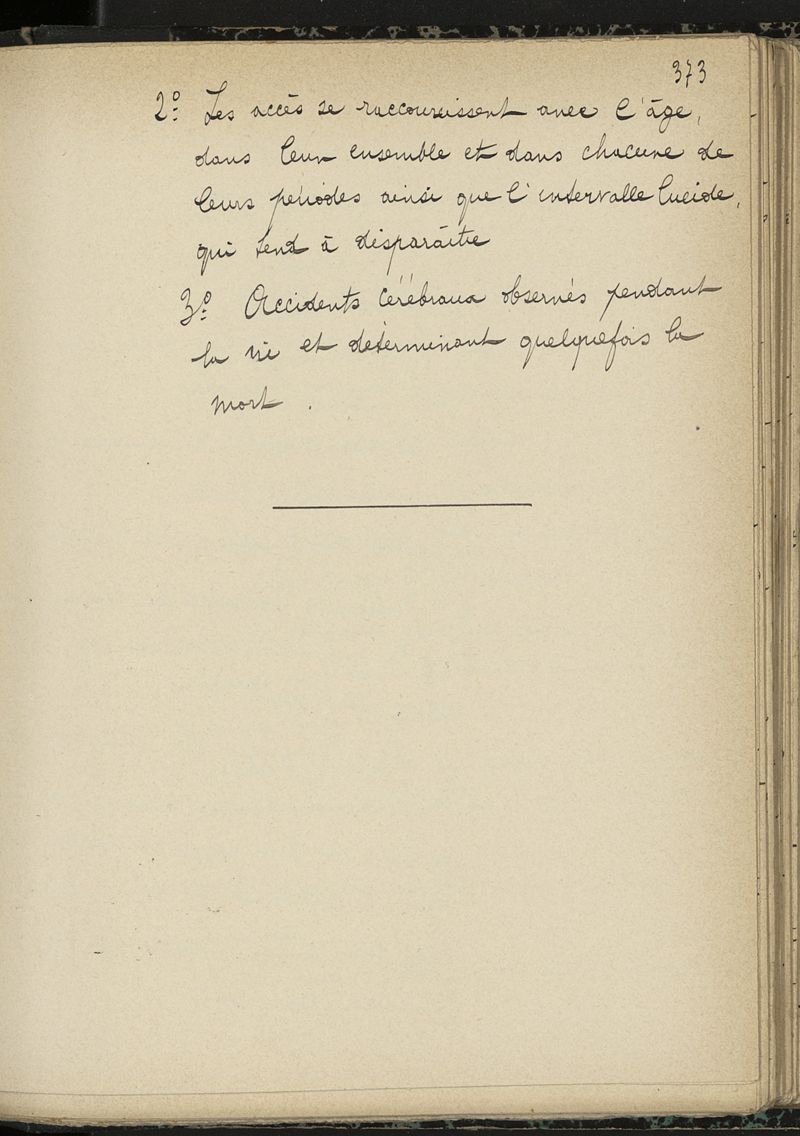 373
2º Les accès se raccourcissent avec l'âge,
dans leur ensemble et dans chacune de
leurs périodes ainsi que l'intervalle lucide,
qui tend à disparaître
3º Accidents cérébraux observés pendant
la vie et déterminant quelquefois la
mort .